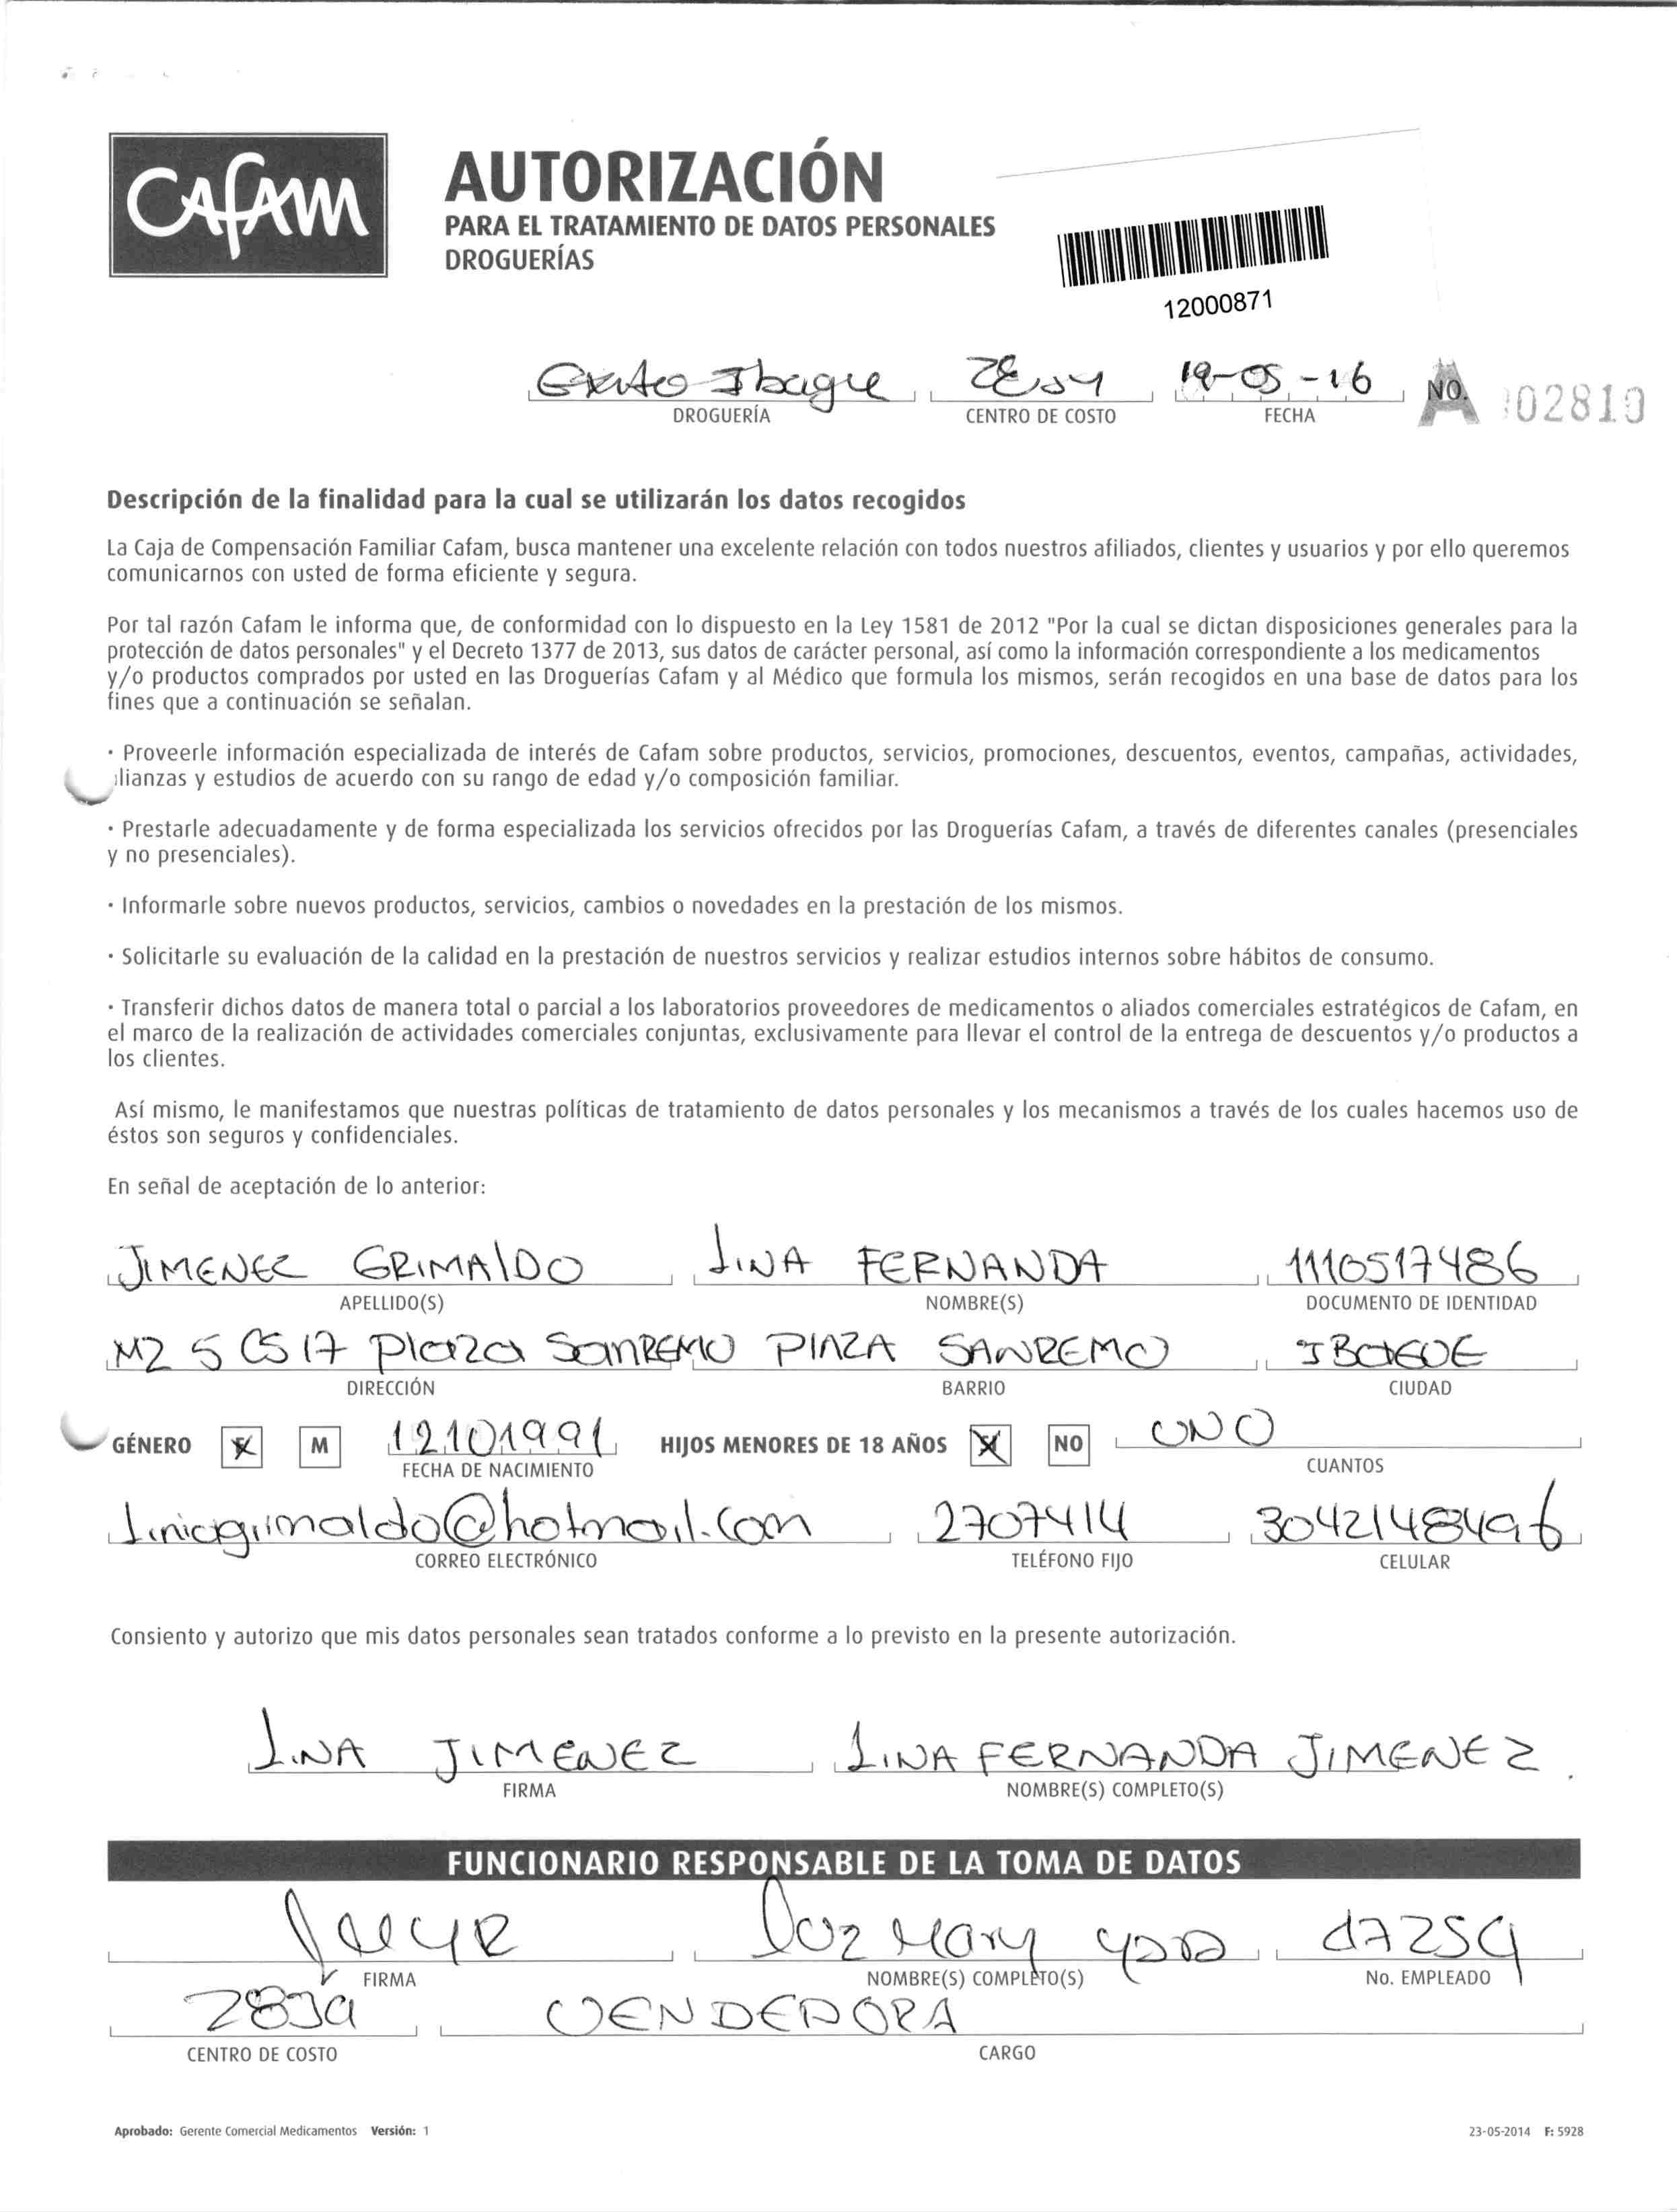 Cafam
AUTORIZACIÓN
PARA EL TRATAMIENTO DE DATOS PERSONALES
DROGUERÍAS
12000871
Exito Ibague 19-05-16 NO. A 02810
DROGUERÍA CENTRO DE COSTO FECHA
Descripción de la finalidad para la cual se utilizarán los datos recogidos
La Caja de Compensación Familiar Cafam, busca mantener una excelente relación con todos nuestros afiliados, clientes y usuarios y por ello queremos
comunicarnos con usted de forma eficiente y segura.
Por tal razón Cafam le informa que, de conformidad con lo dispuesto en la Ley 1581 de 2012 "Por la cual se dictan disposiciones generales para la
protección de datos personales" y el Decreto 1377 de 2013, sus datos de carácter personal, así como la información correspondiente a los medicamentos
y/o productos comprados por usted en las Droguerías Cafam y al Médico que formula los mismos, serán recogidos en una base de datos para los
fines que a continuación se señalan.
· Proveerle información especializada de interés de Cafam sobre productos, servicios, promociones, descuentos, eventos, campañas, actividades,
lianzas y estudios de acuerdo con su rango de edad y/o composición familiar.
· Prestarle adecuadamente y de forma especializada los servicios ofrecidos por las Droguerías Cafam, a través de diferentes canales (presenciales
y no presenciales).
· Informarle sobre nuevos productos, servicios, cambios o novedades en la prestación de los mismos.
· Solicitarle su evaluación de la calidad en la prestación de nuestros servicios y realizar estudios internos sobre hábitos de consumo.
· Transferir dichos datos de manera total o parcial a los laboratorios proveedores de medicamentos o aliados comerciales estratégicos de Cafam, en
el marco de la realización de actividades comerciales conjuntas, exclusivamente para llevar el control de la entrega de descuentos y/o productos a
los clientes.
Así mismo, le manifestamos que nuestras políticas de tratamiento de datos personales y los mecanismos a través de los cuales hacemos uso de
éstos son seguros y confidenciales.
En señal de aceptación de lo anterior:
JIMENEZ GRIMALDO LINA FERNANDA 1110517486
APELLIDO(S) NOMBRE(S) DOCUMENTO DE IDENTIDAD
MZ 5 CS 17 Plaza SanREMO PLAZA SANREMO IBAGUE
DIRECCIÓN BARRIO CIUDAD
GÉNERO X M 12101991 HIJOS MENORES DE 18 AÑOS X NO UNO
FECHA DE NACIMIENTO CUANTOS
liniagrimaldo@hotmail.com 2707414 3042148496
CORREO ELECTRÓNICO TELÉFONO FIJO CELULAR
Consiento y autorizo que mis datos personales sean tratados conforme a lo previsto en la presente autorización.
LINA JIMENEZ LINA FERNANDA JIMENEZ
FIRMA NOMBRE(S) COMPLETO(S)
FUNCIONARIO RESPONSABLE DE LA TOMA DE DATOS
Luz Mary
FIRMA NOMBRE(S) COMPLETO(S) No. EMPLEADO
VENDEDORA
CENTRO DE COSTO CARGO
Aprobado: Gerente Comercial Medicamentos Versión: 1 23-05-2014 F: 5928